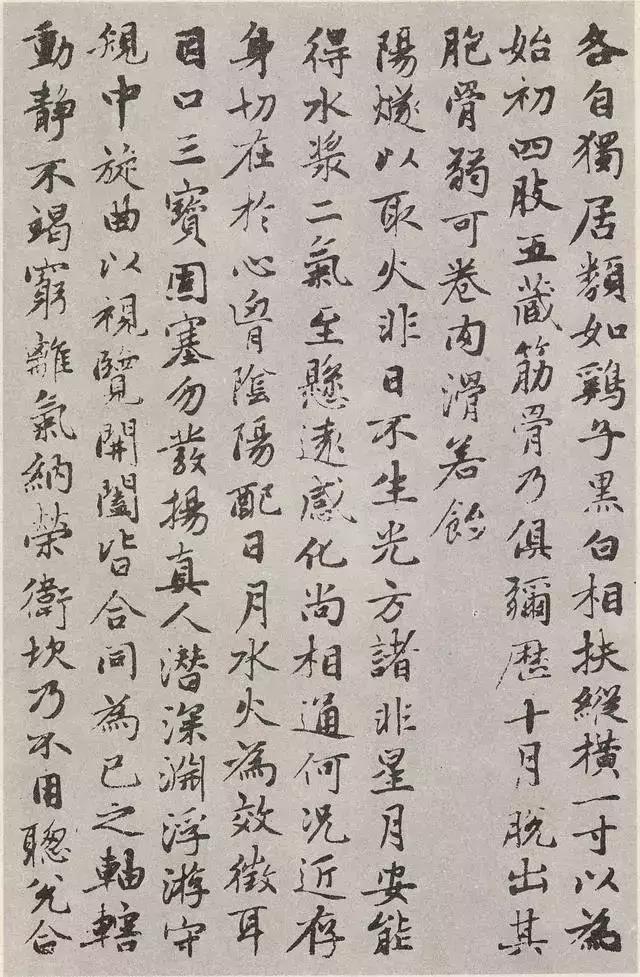 各自獨居類如鷄子黒白相扶縱橫一寸以為
始初四肢五藏筋骨乃俱彌歷十月脫出其
胞骨弱可卷肉滑若飴
陽燧以取火非日不生光方諸非星月安能
得水漿二氣至懸遠感化尚相通何況近存
身切在於心胷陰陽配日月水火為效徵耳
目口三寶固塞勿發揚真人潛深淵浮游守
規中旋曲以視覽開闔皆合同為己之軸轄
動靜不竭窮離氣納榮衛坎乃不用聰兌合